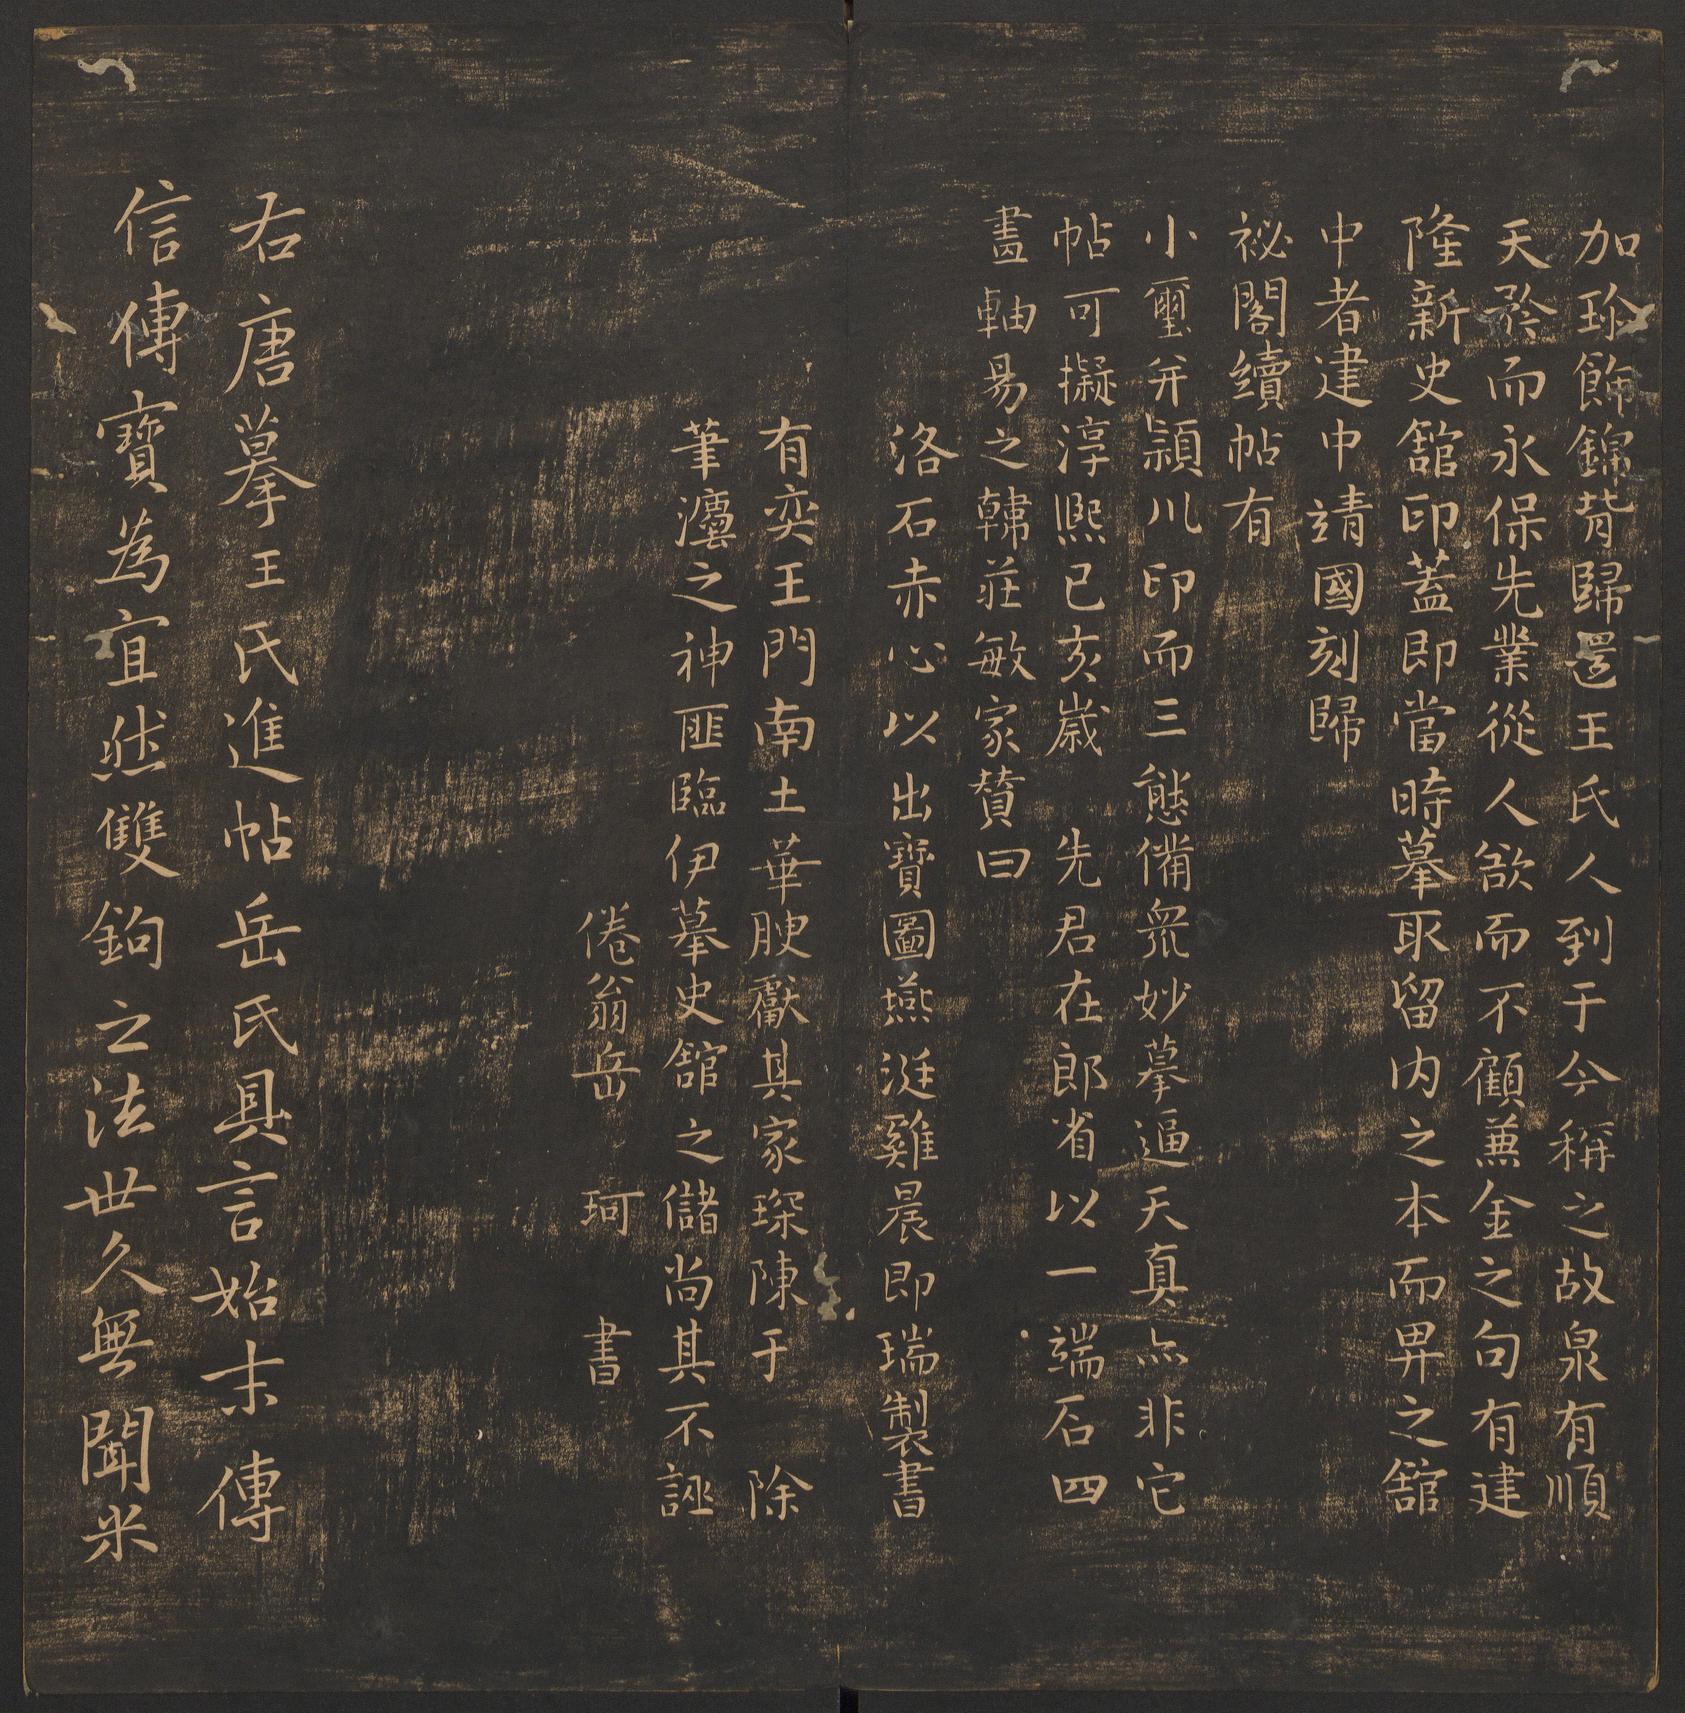 加珍飾錦背歸還王氏人到于今稱之故泉有順
天孴而永保先業從人欲而不顧兼金之句有建
隆新史館印蓋即當時摹取留内之本而畀之館
中者建中靖國刻歸
祕閣續帖有
小璽并潁川印而三態備衆妙摹逼天真亦非它
帖可擬淳熙已亥歲 先君在郎省以一端石四
畫軸易之韓莊敏家贊曰
洛石赤心以出寶圖燕涎雞晨即瑞製書
有奕王門南土華腴獻其家琛陳于 除
筆灋之神匪臨伊摹史館之儲尚其不誣
倦翁岳 珂 書
右唐摹王氏進帖岳氏具言始末傳
信傳寶為宜然雙鉤之法世久無聞米